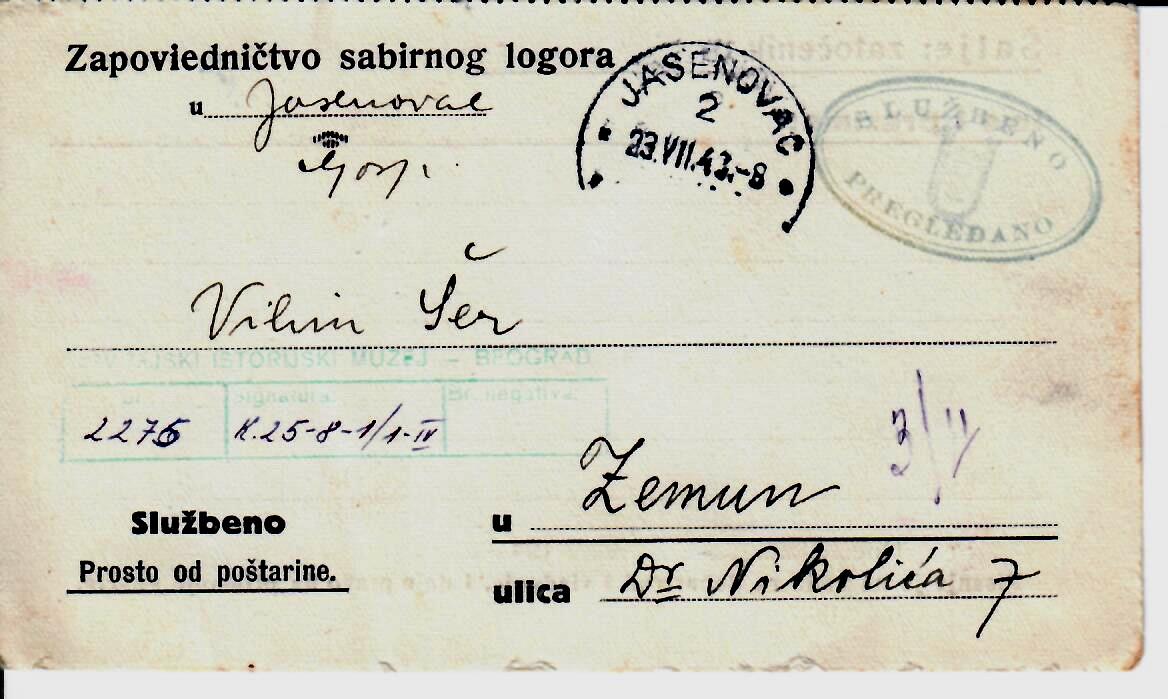 Zapoviedničtvo sabirnog logora
u Jasenovac
Gosp.
JASENOVAC
2
23.VII.43.-8
SLUŽBENO
PREGLEDANO
Vilim Šer
ISTORIJSKI MUZEJ - BEOGRAD
Signatura: Br. negativa:
2276 K.25-8-1/1-IV
3/II
Zemun
Službeno u
Prosto od poštarine.
ulica Dr Nikolića 7